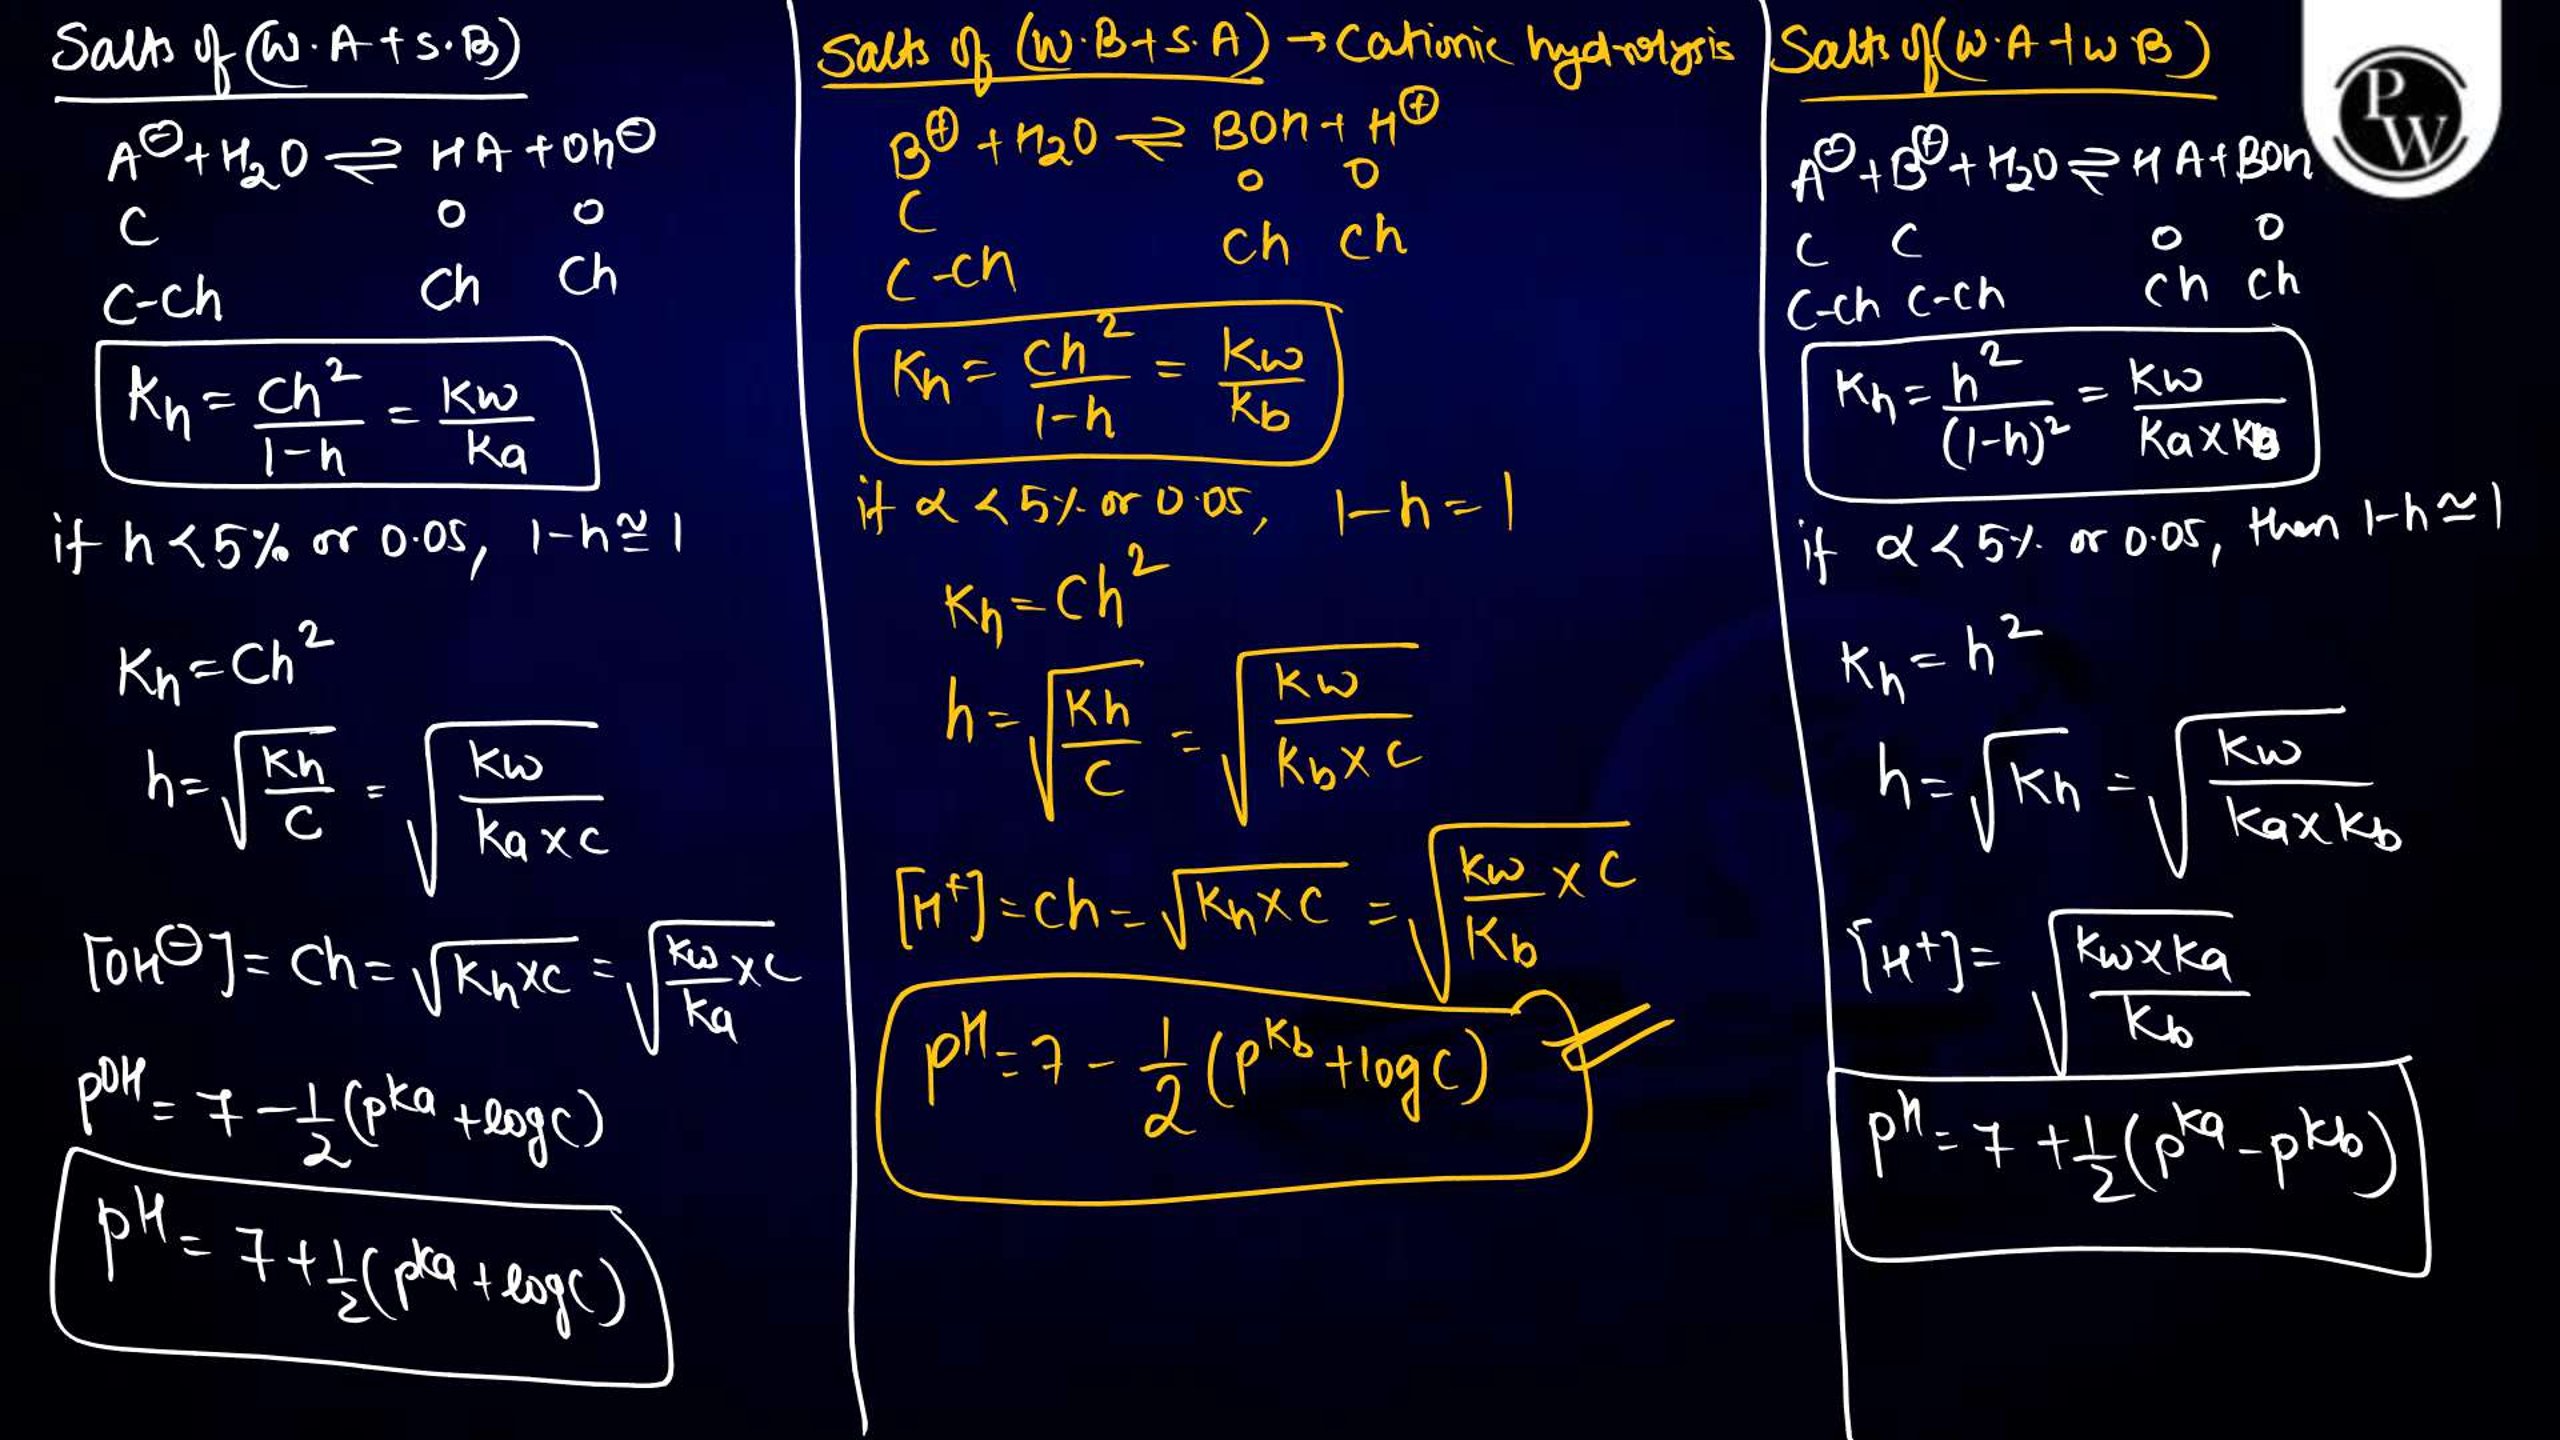 Salts of (W.A + S.B)
A⊖ + H2O ⇌ HA + OH⊖
C 0 0
C-Ch Ch Ch
Kh = Ch²/(1-h) = Kw/Ka
if h < 5% or 0.05, 1-h ≅ 1
Kh = Ch²
h = √(Kh/C) = √(Kw/(Ka × C))
[OH⊖] = Ch = √(Kh × C) = √(Kw/Ka × C)
pOH = 7 - 1/2 (pKa + log C)
pH = 7 + 1/2 (pKa + log C)
Salts of (W.B + S.A) → Cationic hydrolysis
B⊕ + H2O ⇌ BOH + H⊕
C 0 0
C-Ch Ch Ch
Kh = Ch²/(1-h) = Kw/Kb
if α < 5% or 0.05, 1-h = 1
Kh = Ch²
h = √(Kh/C) = √(Kw/(Kb × C))
[H+] = Ch = √(Kh × C) = √(Kw/Kb × C)
pH = 7 - 1/2 (pKb + log C)
Salts of (W.A + W.B)
A⊖ + B⊕ + H2O ⇌ HA + BOH
C C 0 0
C-Ch C-Ch Ch Ch
Kh = h²/(1-h)² = Kw/(Ka × Kb)
if α < 5% or 0.05, then 1-h ≅ 1
Kh = h²
h = √Kh = √(Kw/(Ka × Kb))
[H+] = √(Kw × Ka/Kb)
pH = 7 + 1/2 (pKa - pKb)
PW